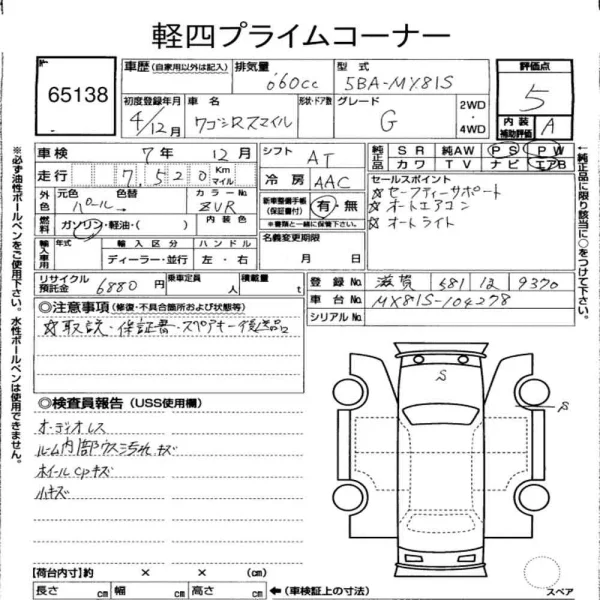 軽四プライムコーナー
65138
車歴 (自家用以外は記入) 排気量 060cc 型式 5BA-MX81S 評価点 5
初度登録年月 4/12月 車名 ワゴンRスマイル 形状・ドア数 グレード G 2WD ・ 4WD 内装補助評価 A
車検 7年 12月 シフト AT 純正品 SR 純AW PS PW
カワ TV ナビ エアB
走行 7,520 Km マイル 冷房 AAC セールスポイント
外色 元色 パール→ 色替 カラーNo. ZVR 新車整備手帳(保証書付) 有・無 ※書類と一緒に保管下さい。
☆セーフティーサポート
☆オートエアコン
☆オートライト
燃料 ガソリン・軽油・( ) 内装色 名義変更期限 月 日
輸入車用 年式 輸入区分 ハンドル
ディーラー・並行 左・右
リサイクル預託金 6880円 乗車定員 人 積載量 t 登録No. 滋賀 581 い 9370
車台No. MX81S-104278
シリアルNo.
◎注意事項 (修復・不具合箇所および状態等)
☆取説・保証書・スペアキー後送品
◎検査員報告 (USS使用欄)
オーディオレス
ルーム内部ウス汚れキズ
ホイールCPキズ
小キズ
S
S
【荷台内寸】約 × × (cm)
長さ cm 幅 cm 高さ cm ←(車検証上の寸法)
スペア
※必ず油性ボールペンをご使用下さい。水性ボールペンは使用できません。
←純正品に限り該当に○をつけて下さい。